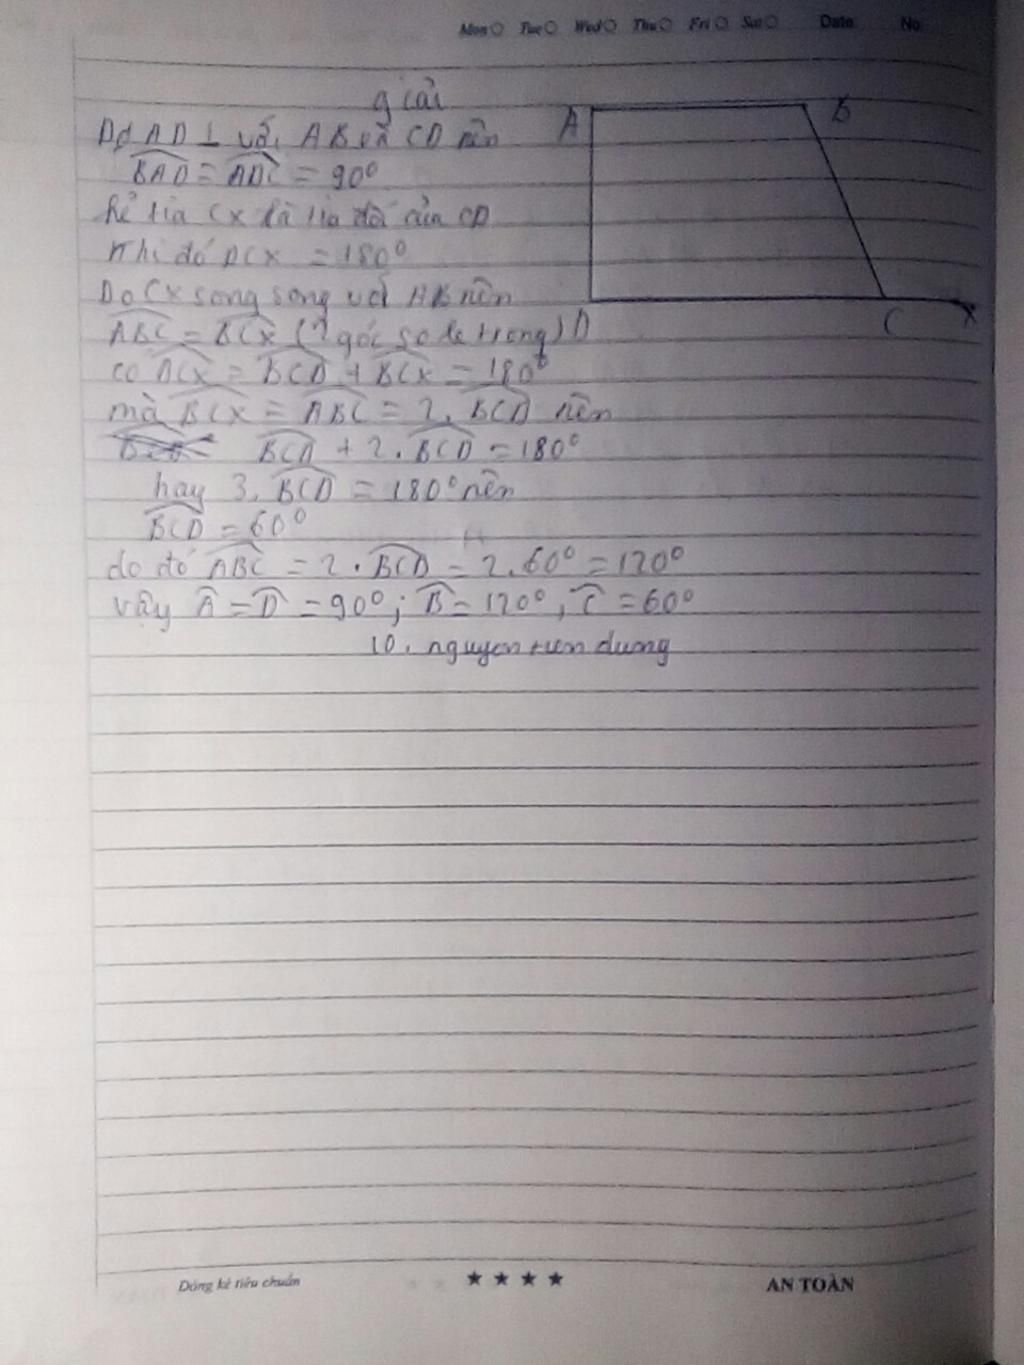 Mon Tue Wed Thu Fri Sat Date No
giải
Do AD ⊥ với AB và CD nên
BAD = ADC = 90°
kẻ tia Cx là tia đối của CD
khi đó DCx = 180°
Do Cx song song với AB nên
ABC = BCx (2 góc so le trong)
có DCx = BCD + BCx = 180°
mà BCx = ABC = 2. BCD nên
BCD + 2. BCD = 180°
hay 3. BCD = 180° nên
BCD = 60°
do đó ABC = 2. BCD = 2.60° = 120°
vậy A = D = 90°; B = 120°, C = 60°
10. nguyen tien dung
A B
D C x
Dòng kẻ tiêu chuẩn ★ ★ ★ ★ AN TOÀN